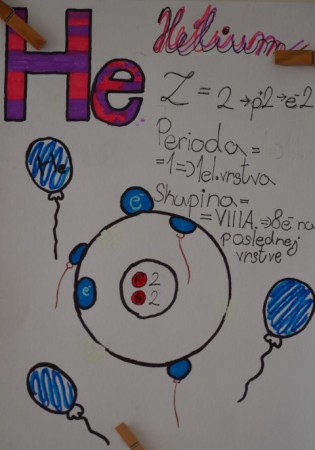 He
Helium
Z = 2 → p⁺2 → e⁻2
Perioda =
=1=>1el.vrstva
Skupina =
= VIIIA. => 8e⁻ na
poslednej
vrstve
He
e⁻
e⁻
2
2